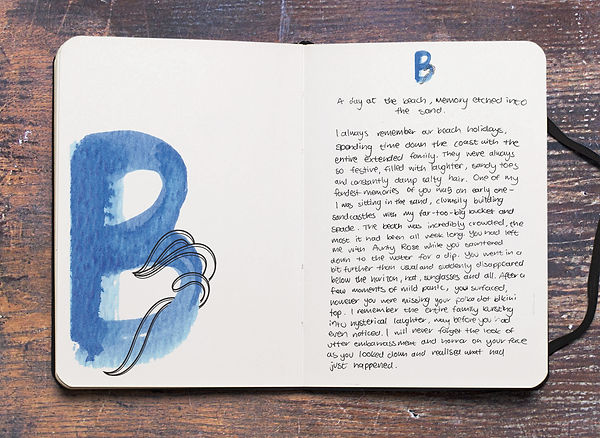 B
B
A day at the beach, memory etched into
the sand.
I always remember our beach holidays,
spending time down the coast with the
entire extended family. They were always
so festive, filled with laughter, sandy toes
and constantly damp salty hair. One of my
fondest memories of you was an early one –
I was sitting in the sand, clumsily building
sandcastles with my far-too-big bucket and
spade. The beach was incredibly crowded, the
most it had been all week long. You had left
me with Aunty Rose while you sauntered
down to the water for a dip. You went in a
bit further than usual and suddenly disappeared
below the horizon, hat, sunglasses and all. After a
few moments of mild panic, you surfaced,
however you were missing your polka dot bikini
top. I remember the entire family bursting
into hysterical laughter, way before you had
even noticed. I will never forget the look of
utter embarrassment and horror on your face
as you looked down and realised what had
just happened.